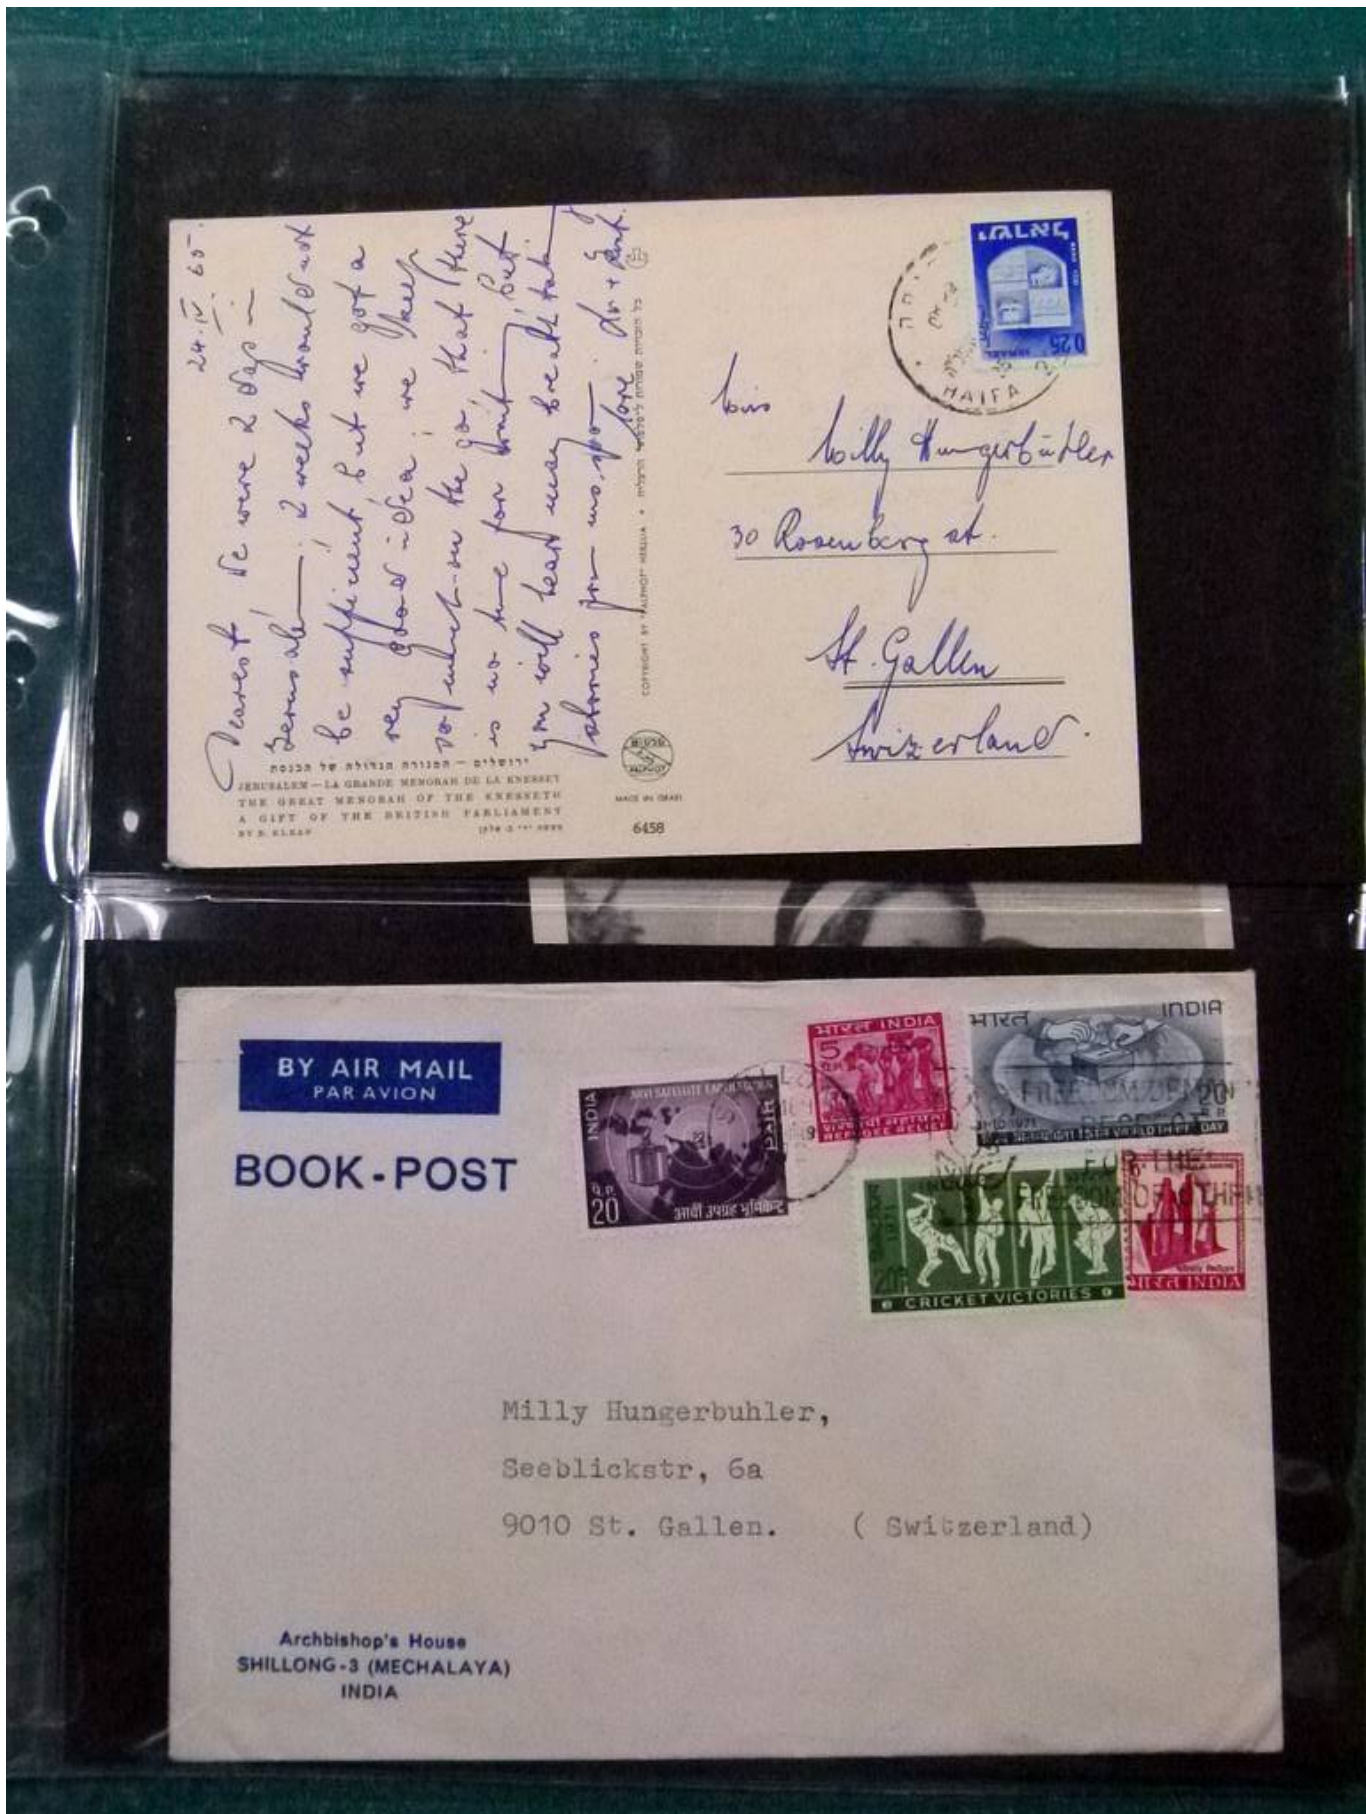 24.IV.65.
Dearest we were 2 days in
Jerusalem 2 weeks would not
be sufficient but we got a
very good idea, we keep
so much on the go, that there
is no time for but
you will hear many breathtaking
stories from us, love
ירושלים — המנורה הגדולה של הכנסת
JERUSALEM — LA GRANDE MENORAH DE LA KNESSET
THE GREAT MENORAH OF THE KNESSETH
A GIFT OF THE BRITISH PARLIAMENT
BY B. ELKAN
מעשה ידי ב. אלקן
COPYRIGHT BY "ALPHOT" HERZLIA • כל הזכויות שמורות
ALPHOT
MADE IN ISRAEL
6458
ישראל
ISRAEL
0.25
HAIFA
חיפה
Miss
Milly Hungerbühler
30 Rosenberg st.
St. Gallen
Switzerland.
BY AIR MAIL
PAR AVION
BOOK-POST
INDIA
ARVI SATELLITE EARTH STATION
भारत
20
आर्वी उपग्रह भूमिकेन्द्र
भारत INDIA
5
REFUGEE RELIEF
भारत INDIA
20
1971
DAY
FOR THE
1971
CRICKET VICTORIES
भारत INDIA
Milly Hungerbuhler,
Seeblickstr, 6a
9010 St. Gallen. ( Switzerland)
Archbishop's House
SHILLONG-3 (MECHALAYA)
INDIA